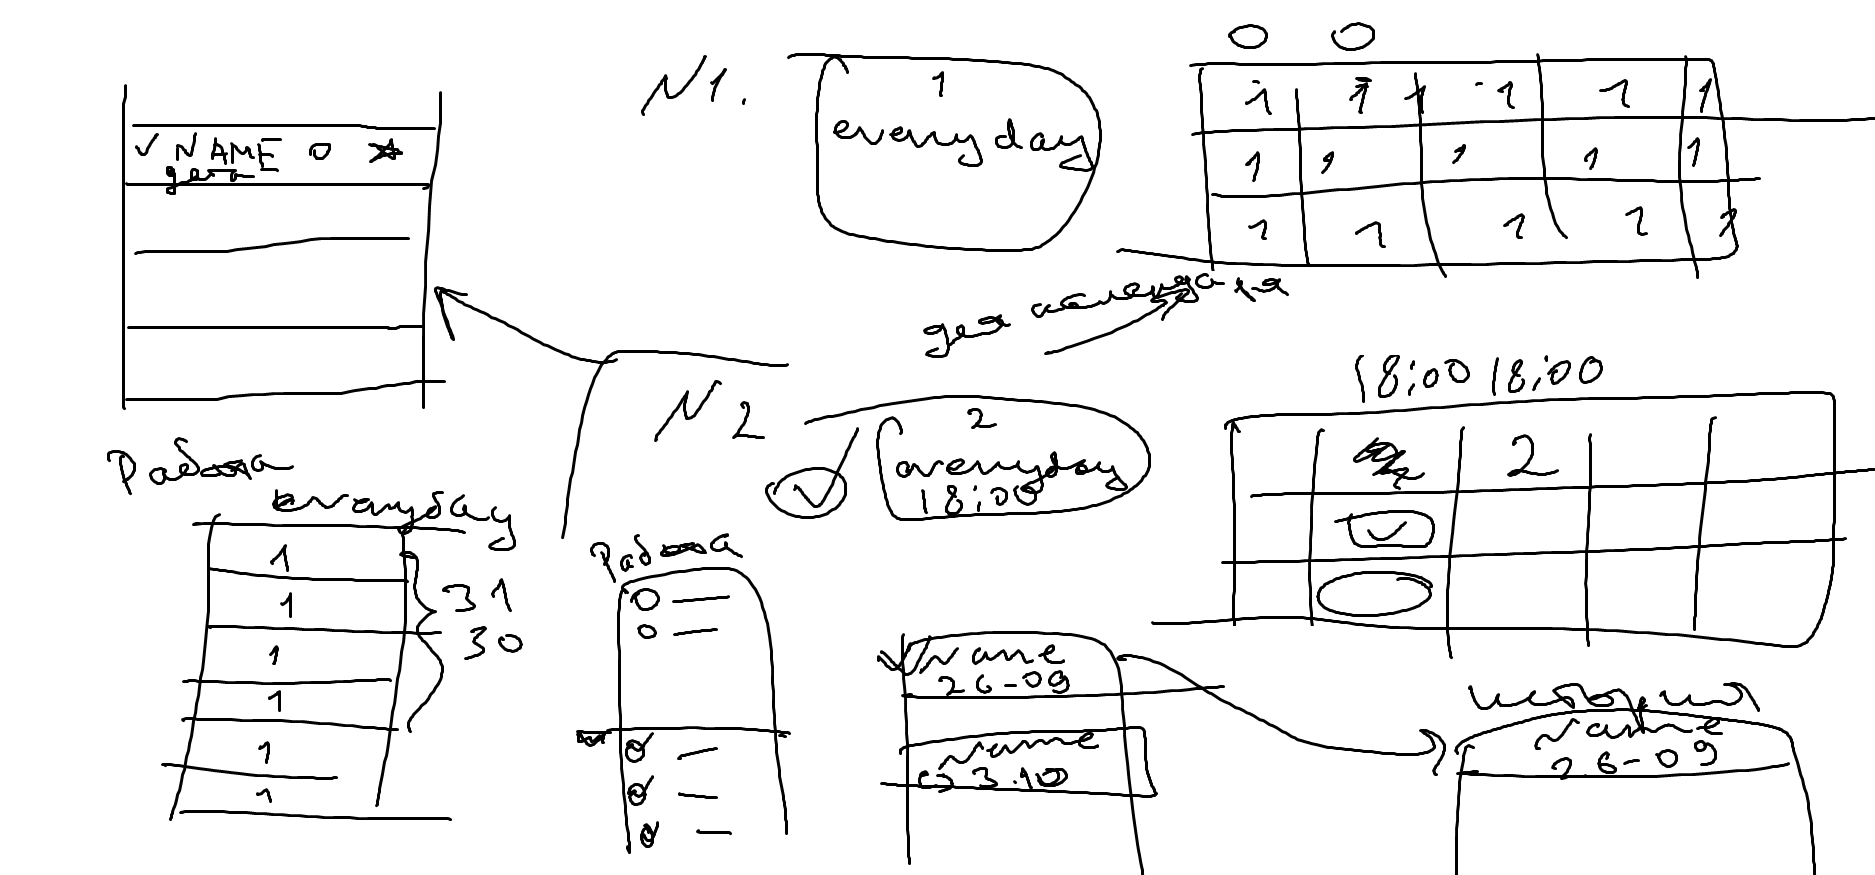 ✓ NAME O ☆
дела
N1.
1
everyday
1 1 1 1 1 1
1 1 1 1 1
1 1 1 1 1
для календаря
N2
2
everyday
18:00
18:00 18:00
2
Работа
everyday
1
1
1
1
1
1
31
30
Работа
Name
26-09
Name
3.10
история
Name
26-09